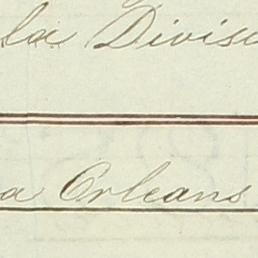 la Divisi
a Orleans